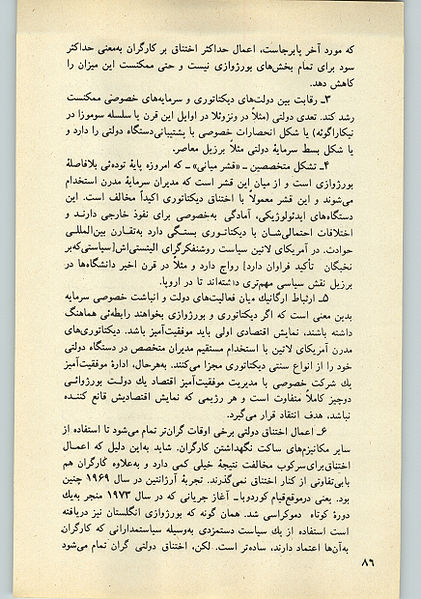 که مورد آخر پابرجاست، اعمال حداکثر اختناق بر کارگران به‌معنی حداکثر
سود برای تمام بخش‌های بورژوازی نیست و حتی ممکنست این میزان را
کاهش دهد.
۳ـ رقابت بین دولت‌های دیکتاتوری و سرمایه‌های خصوصی ممکنست
رشد کند. تعدی دولتی (مثلاً در ونزوئلا در اوایل این قرن یا سلسله سوموزا در
نیکاراگوئه) یا شکل انحصارات خصوصی با پشتیبانی دستگاه دولتی را دارد و
یا شکل بسط سرمایهٔ دولتی مثلاً برزیل معاصر.
۴ـ تشکل متخصصین ـ «قشر میانی» ـ که امروزه پایهٔ توده‌ئی بلافاصلهٔ
بورژوازی است و از میان این قشر است که مدیران سرمایهٔ مدرن استخدام
می‌شوند و این قشر معمولاً با اختناق دیکتاتوری اکیداً مخالف است. این
دستگاه‌های ایدئولوژیکی، آمادگی به‌خصوصی برای نفوذ خارجی دارند و
اختلافات احتمالی‌شان با دیکتاتوری بستگی دارد به‌تقارن بین‌المللی
حوادث. در آمریکای لاتین سیاست روشنفکرگرای الیتستی‌اش [سیاستی که بر
نخبگان تأکید فراوان دارد] رواج دارد و مثلاً در قرن اخیر دانشگاه‌ها در
برزیل نقش سیاسی مهم‌تری داشته‌اند تا در اروپا.
۵ـ ارتباط ارگانیک میان فعالیت‌های دولت و انباشت خصوصی سرمایه
بدین معنی است که اگر دیکتاتوری و بورژوازی بخواهند رابطه‌ئی هماهنگ
داشته باشند، نمایش اقتصادی اولی باید موفقیت‌آمیز باشد. دیکتاتوری‌های
مدرن آمریکای لاتین با استخدام مستقیم مدیران متخصص در دستگاه دولتی
خود را از انواع سنتی دیکتاتوری مجزا می‌کنند. به‌هرحال، ادارهٔ موفقیت‌آمیز
یك شرکت خصوصی با مدیریت موفقیت‌آمیز اقتصاد یك دولت بورژوائی
دوچیز کاملاً متفاوت است و هر رژیمی که نمایش اقتصادیش قانع کننده
نباشد، هدف انتقاد قرار می‌گیرد.
۶ـ اعمال اختناق دولتی برخی اوقات گران‌تر تمام می‌شود تا استفاده از
سایر مکانیزم‌های ساکت نگهداشتن کارگران. شاید به‌این دلیل که اعمال
اختناق برای سرکوب مخالفت نتیجهٔ خیلی کمی دارد و به‌علاوه کارگران هم
با بی‌تفاوتی از کنار اختناق نمی‌گذرند. تجربهٔ آرژانتین در سال ۱۹۶۹ چنین
بود. یعنی درموقع قیام کوردوبا ـ آغاز جریانی که در سال ۱۹۷۳ منجر به‌یك
دورهٔ کوتاه دموکراسی شد. همان گونه که بورژوازی انگلستان نیز دریافته
است استفاده از یك سیاست دستمزدی به‌وسیله سیاستمدارانی که کارگران
به‌آن‌ها اعتماد دارند، ساده‌تر است. لکن، اختناق دولتی گران تمام می‌شود
۸۶